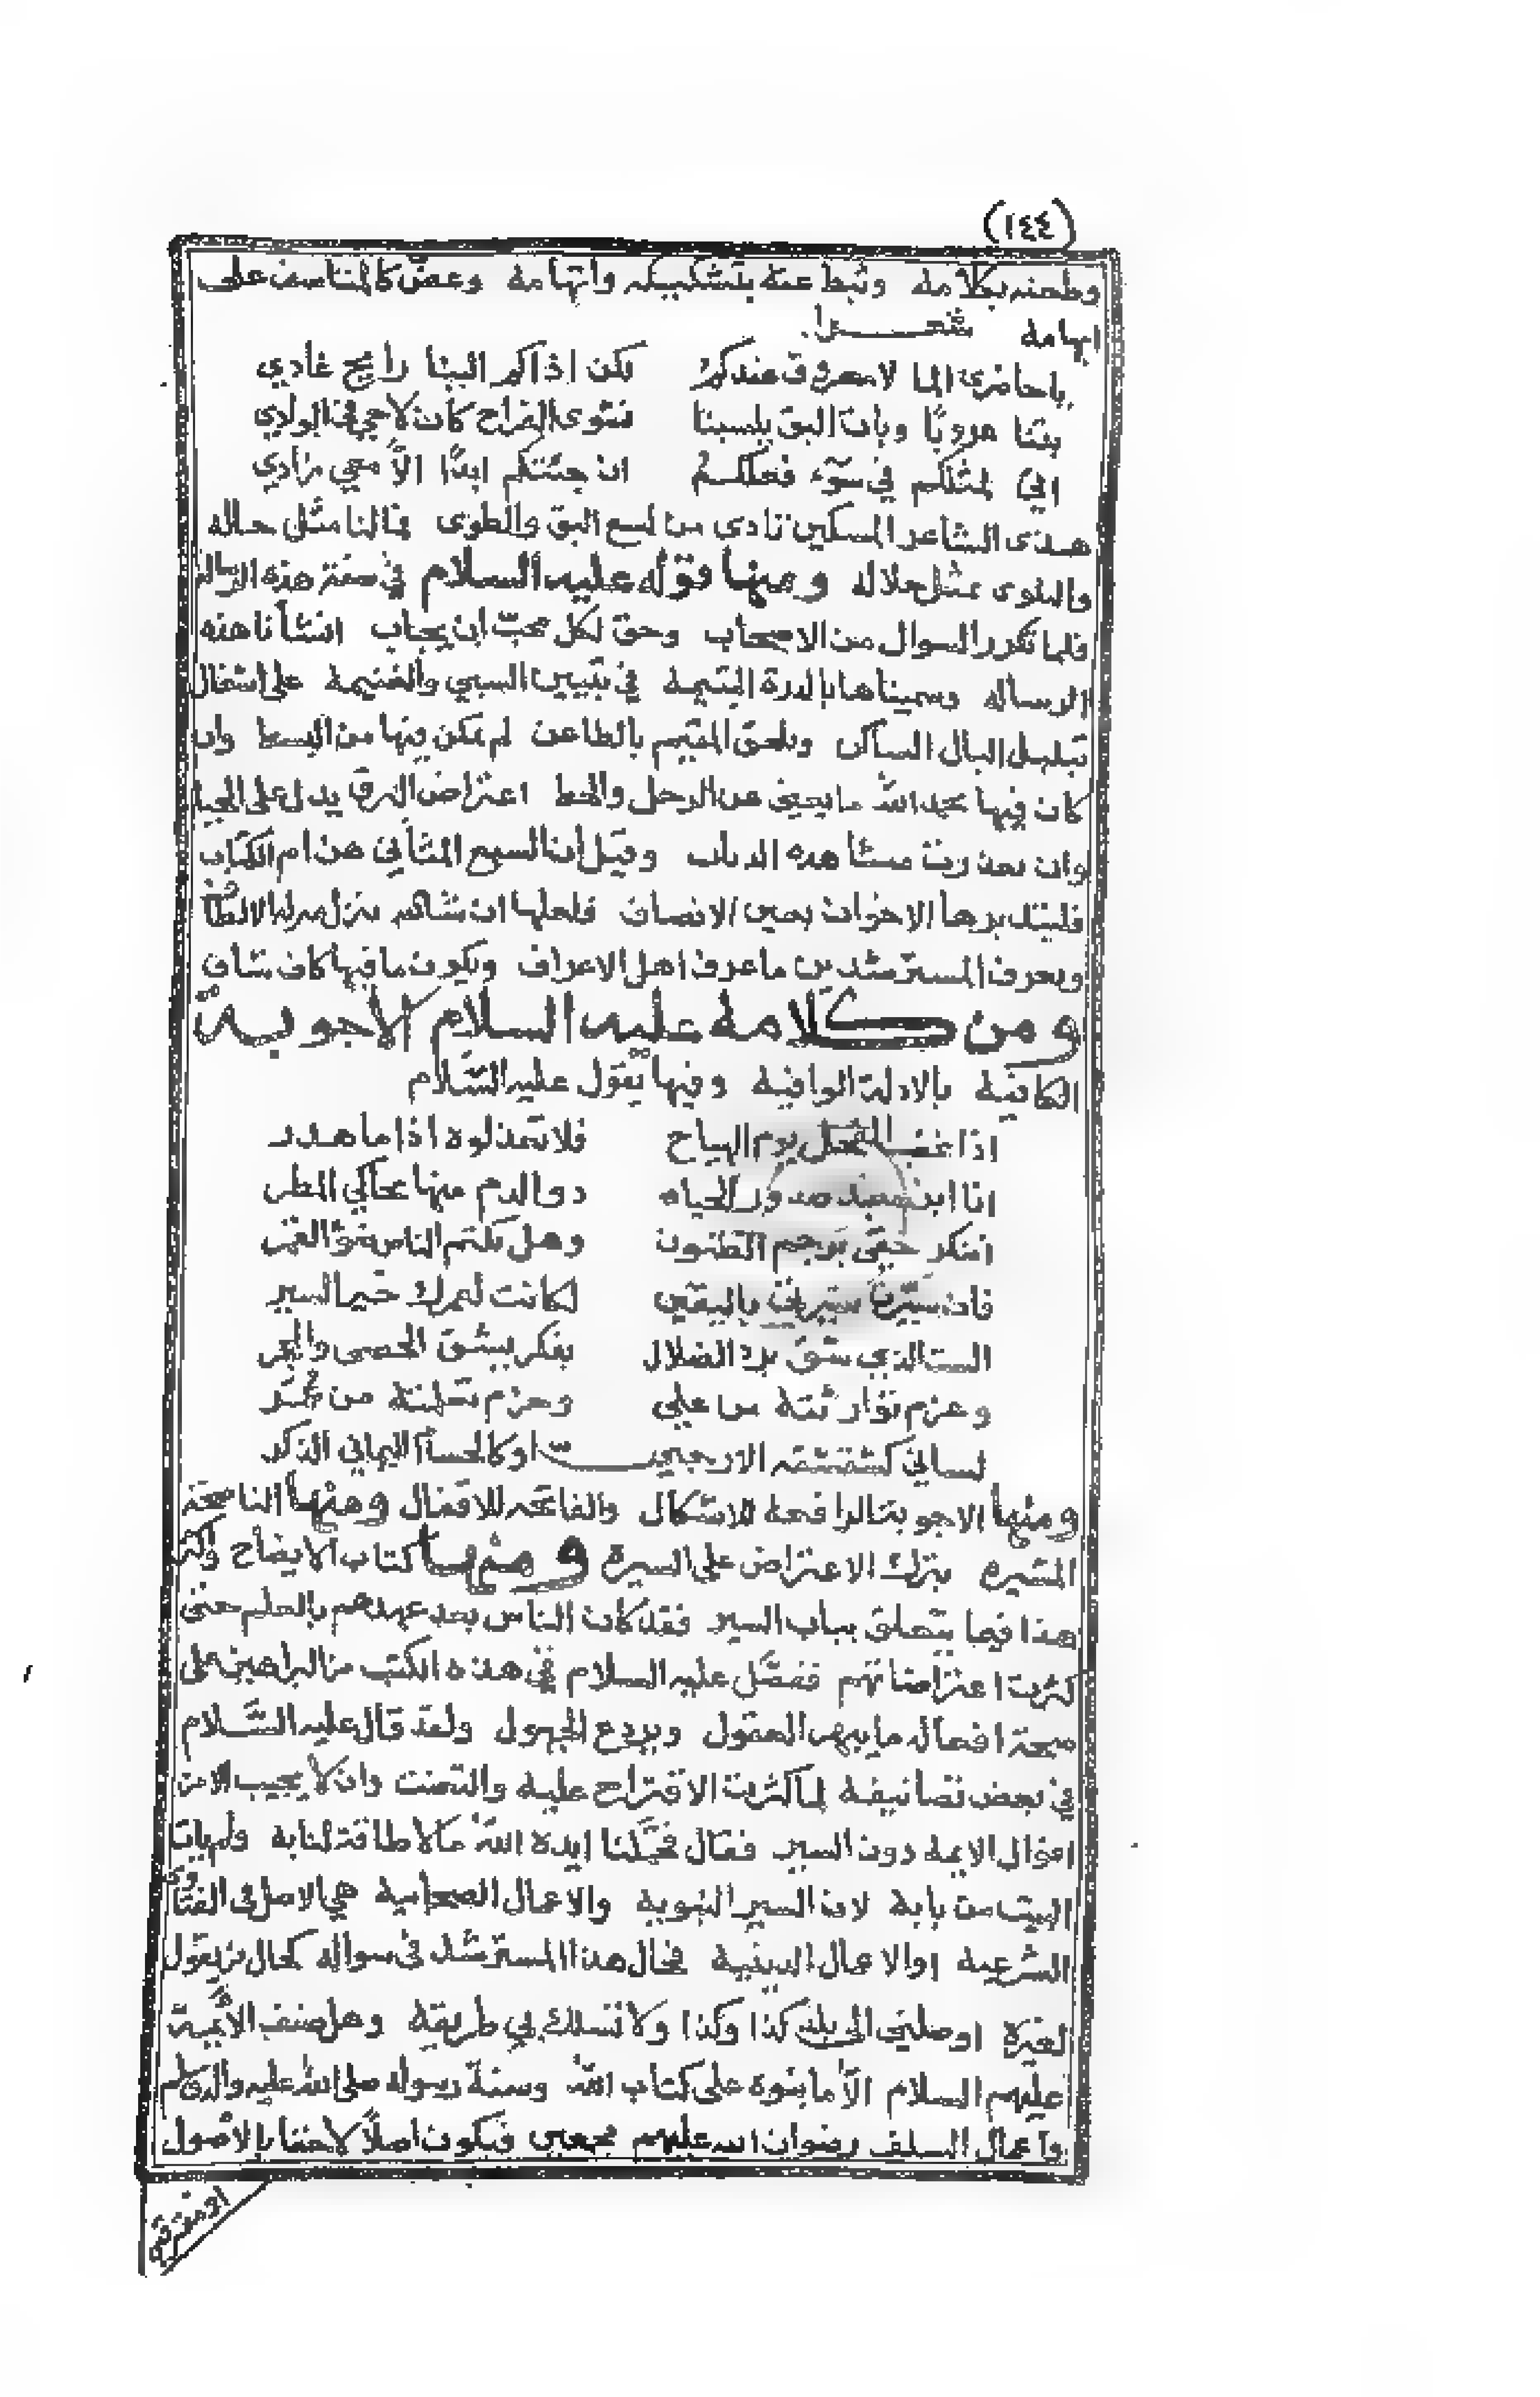 (١٤٤)
وطعنه بكلامه وثبط عنه بتشكيكه واتهامه وعض كالمناصف على
ابهامه شعـــرا
ياحاضري الما لامعروف عندكم لكن اذاكم الينا رايح غادي
بتنا عروبًا وبات البق يلسبنا نشوى القراح كان لا حي في الوادي
اني لمثلكم في سوء فعلكم ان جئتكم ابدًا الا معي زادي
هذى الشاعر المسكين تاذى من لسع البق والطوى فمالنا مثل حاله
والبلوى مثل خلاله ومنها قوله عليه السلام في صفة هذه الرسالة
فلما تكرر السوال من الاصحاب وحق لكل محب ان يجاب انشأنا هذه
الرساله وسميناها بالدرة اليتيمة في تبيين السبي والغنيمة على اشتغال
تبلبل البال الساكن وتلحق المقيم بالظاعن لم تكن فيها من البسط وان
كان فيها بحمد الله ما يغني عن الرحل والحط اعتراض البرق يدل على الحيا
وان بعد وقيل ان السبع المثاني هن ام الكتاب
فليتدبرها الاخوان بعين الانصاف فلعلها ان شا الله تنزل منزلة
ويعرف المسترشد من ما عرف اهل الاعراف ويكون ما فيها كاف شاف
ومن كلامه عليه السلام الأجوبة
الكافية بالادلة الوافية وفيها يقول عليه السلام
اذا الفحل يوم الهياح فلا تعذلوه اذا ما هدر
انا ابن دوا لدم منها يحاكي المطر
انكر حتى ترجم الظنون وهل تكتم الناس ضوّ القمر
فان سيرة باليقين لكانت لعمرك خير السير
الست الذي شق برد الضلال بفكر يشق الحصى والحجر
وعزم توارثته من علي وحزم تعلمته من عمر
لساني كشقشقه الارحبي اوكالحسام اليماني الذكر
ومنها الاجوبة الرافعة للاشكال والفاتحه للاقفال ومنها الناصحة
المشيره بترك الاعتراض على السيره ومنها كتاب الايضاح واكثر
هذا فيما يتعلق بباب السير فقد كان الناس بعد عهدهم بالعلم حتى
كثرت اعتراضاتهم ففصّل عليه السلام في هذه الكتب من البراهين على
صحة افعاله ما يبهر العقول ويردع الجهول ولقد قال عليه السلام
في بعض تصانيفه لما كثرت الاقتراح عليه والتعنت وان لا يجيب الا من
اقوال الايمه دون السير فقال فحملنا ايده الله ما لا طاقة لنا به ولم يات
البيت من بابه لان السير النبويه والاعمال الصحابية هي الاصل في الفتاوي
الشرعية والاعمال الدينية فحال هذا المسترشد في سواله كحال من يقول
لغيره اوصلني الى بلد كذا وكذا ولا تسلك بي طريقه وهل صنف الأيمة
عليهم السلام الا ما بنوه على كتاب الله وسنة رسوله صلى الله عليه واله وسلم
واعمال السلف رضوان الله عليهم اجمعين فيكون اصلًا لاحقنا بالأصول